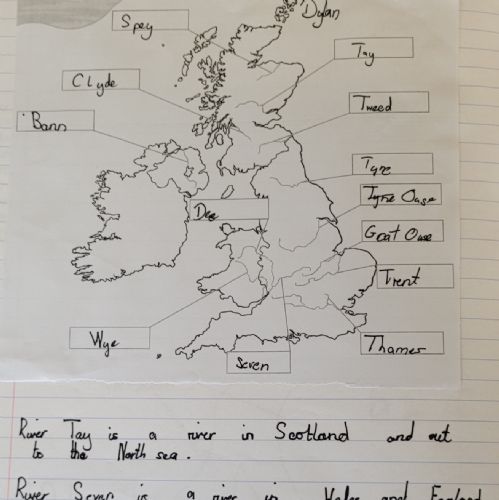 Dylan
Spey
Tay
Clyde
Tweed
Bann
Tyne
Tyne Ouse
Dee
Goat Ouse
Trent
Wye
Thames
Seven
River Tay is a river in Scotland and out
to the North sea.
River Sevan is a river in Wales and England